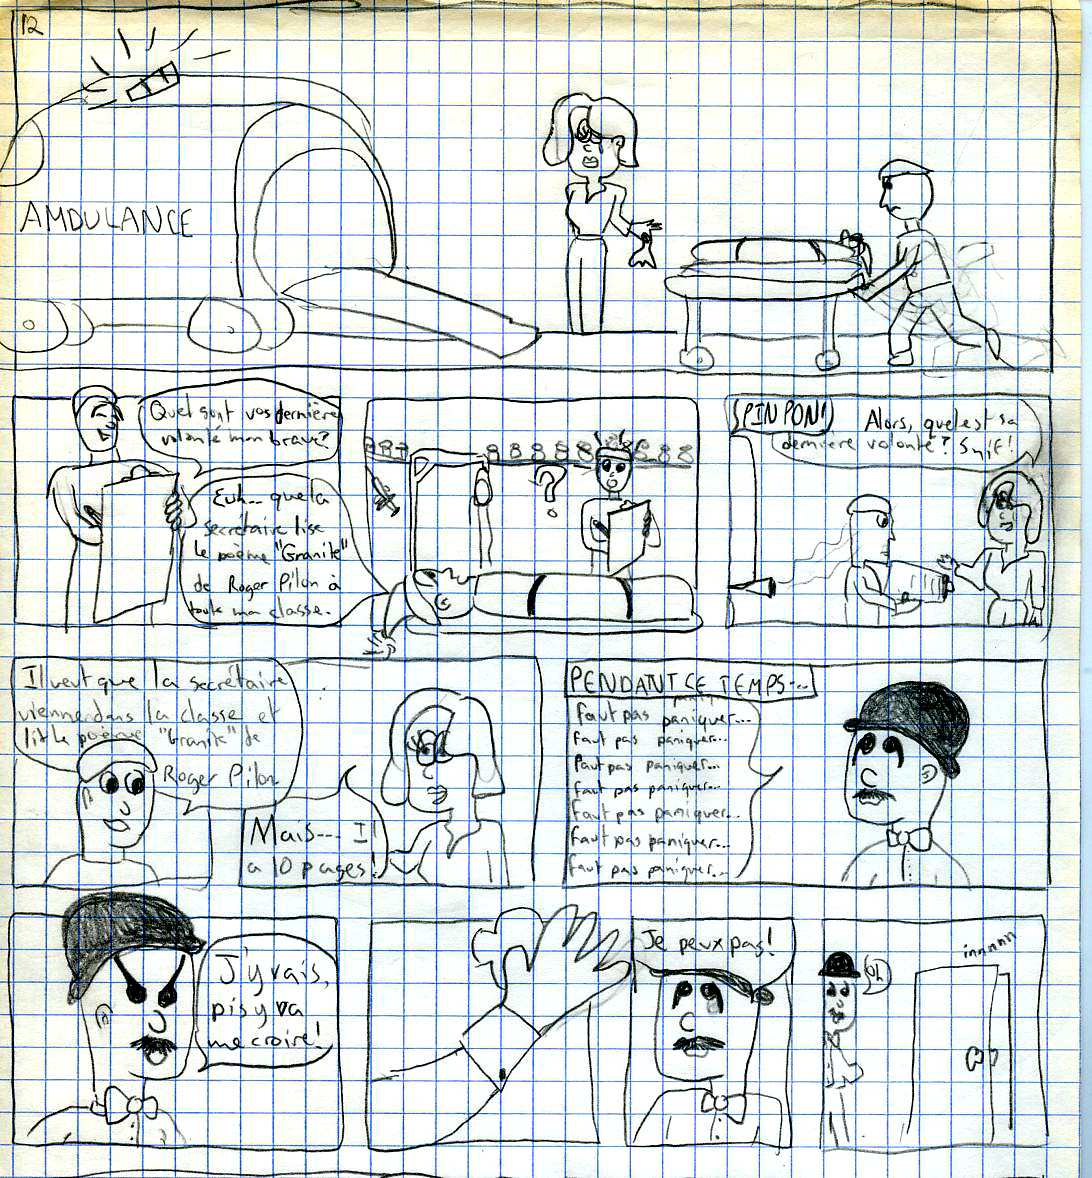 12
AMBULANCE
Quel sont vos dernière
volonté mon brave?
Euh... que la
secrétaire lise
le poème "Granite"
de Roger Pilon à
toute ma classe.
?
PIN PON!
Alors, quel est sa
dernière volonté? Snif!
Il veut que la secrétaire
vienne dans la classe et
lit le poème "Granite" de
Roger Pilon
Mais... Il
a 10 pages!
PENDANT CE TEMPS...
Faut pas paniquer...
Faut pas paniquer...
Faut pas paniquer...
Faut pas paniquer...
Faut pas paniquer...
Faut pas paniquer...
Faut pas paniquer...
J'y vais,
pis y va
me croire!
Je peux pas!
Oh
innnnn